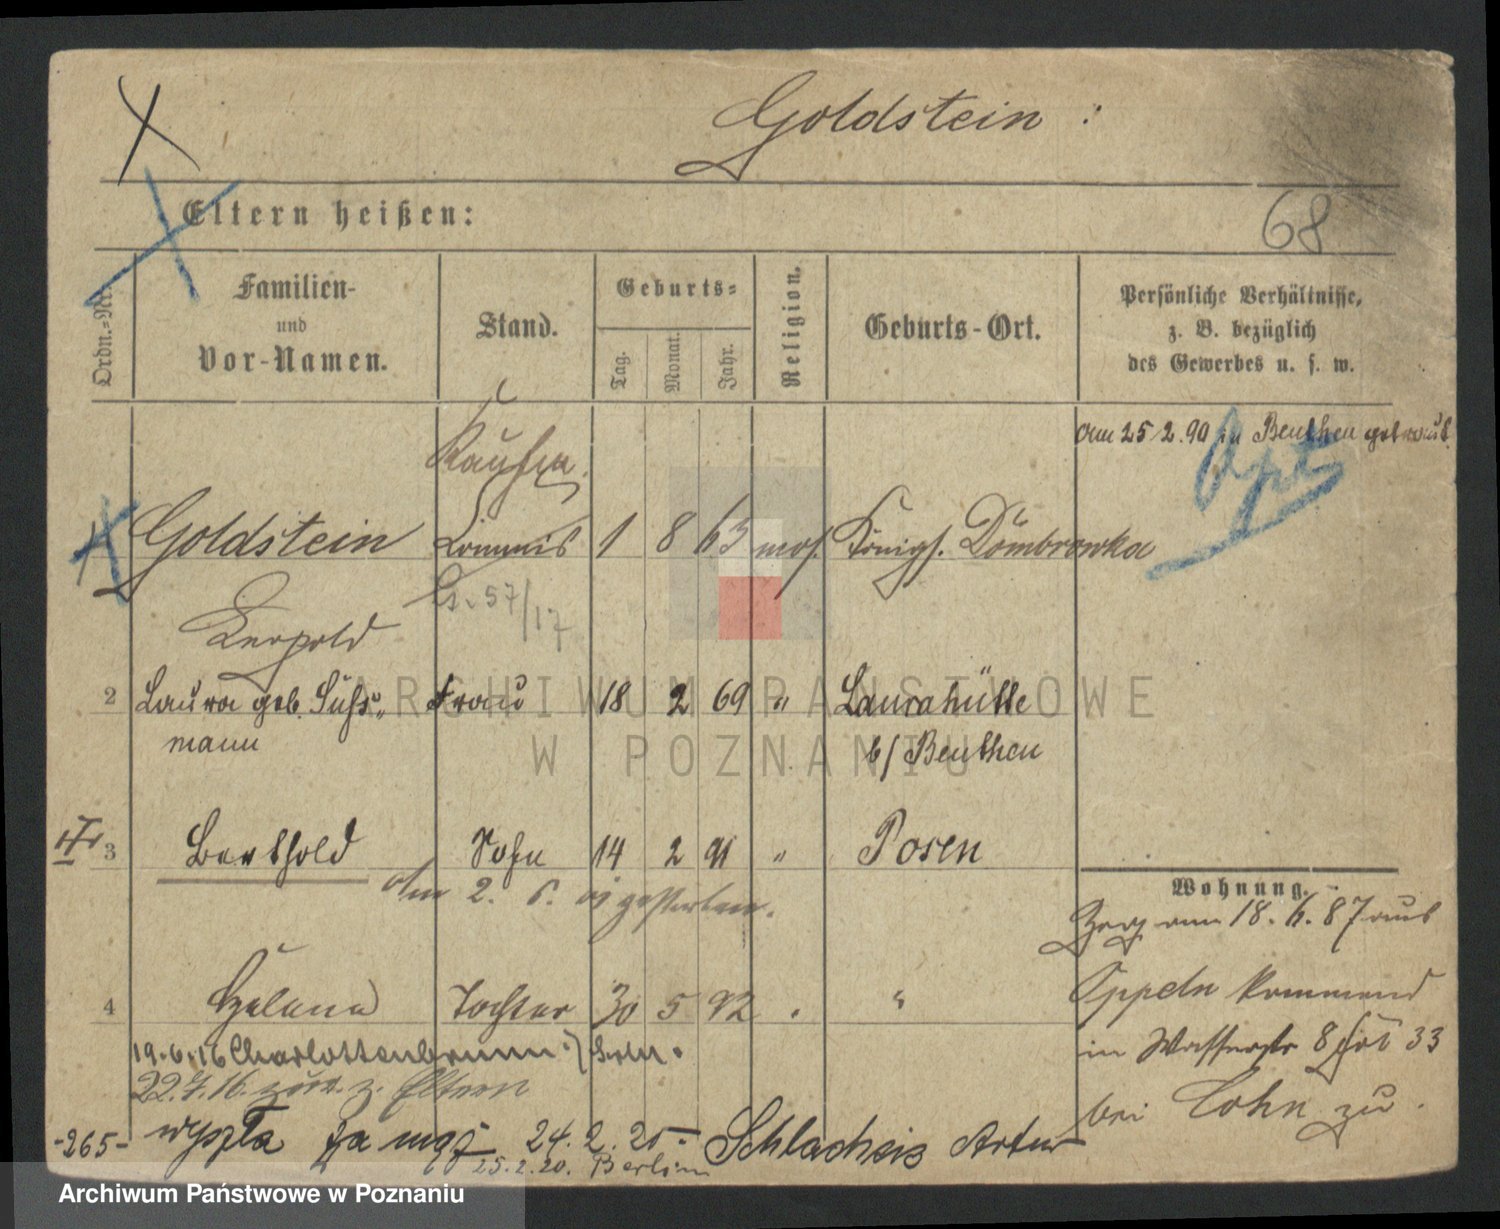 Goldstein :
Eltern heißen:
68
Ordn.=Nr.
Familien-
und
Vor-Namen.
Stand.
Geburts=
Tag.
Monat.
Jahr.
Religion.
Geburts-Ort.
Persönliche Verhältnisse,
z. B. bezüglich
des Gewerbes u. s. w.
am 25/2.90 in Beuthen getraut
Kaufm.
Goldstein Commis 1 8 63 mos. Königl. Dombrowka
57/17
Leopold
2 Laura geb. Süß= Frau 18 2 69 " Laurahütte
mann b/ Beuthen
3 Berthold Sohn 14 2 91 " Posen
am 2. 6. gestorben.
Wohnung.
Zuzg am 18. 6. 87 aus
4 Helene Tochter 30 5 92 " "
Oppeln kommend
19.6.16 Charlottenbrunn
in Wasserstr 8 33
22.7.16. zur. z. Eltern
bei Cohn zu.
-265- wyszła za mąż 24.2.20 - Schlacheis Artur
25.2.20. Berlin
ARCHIWUM PAŃSTWOWE
W POZNANIU
Archiwum Państwowe w Poznaniu